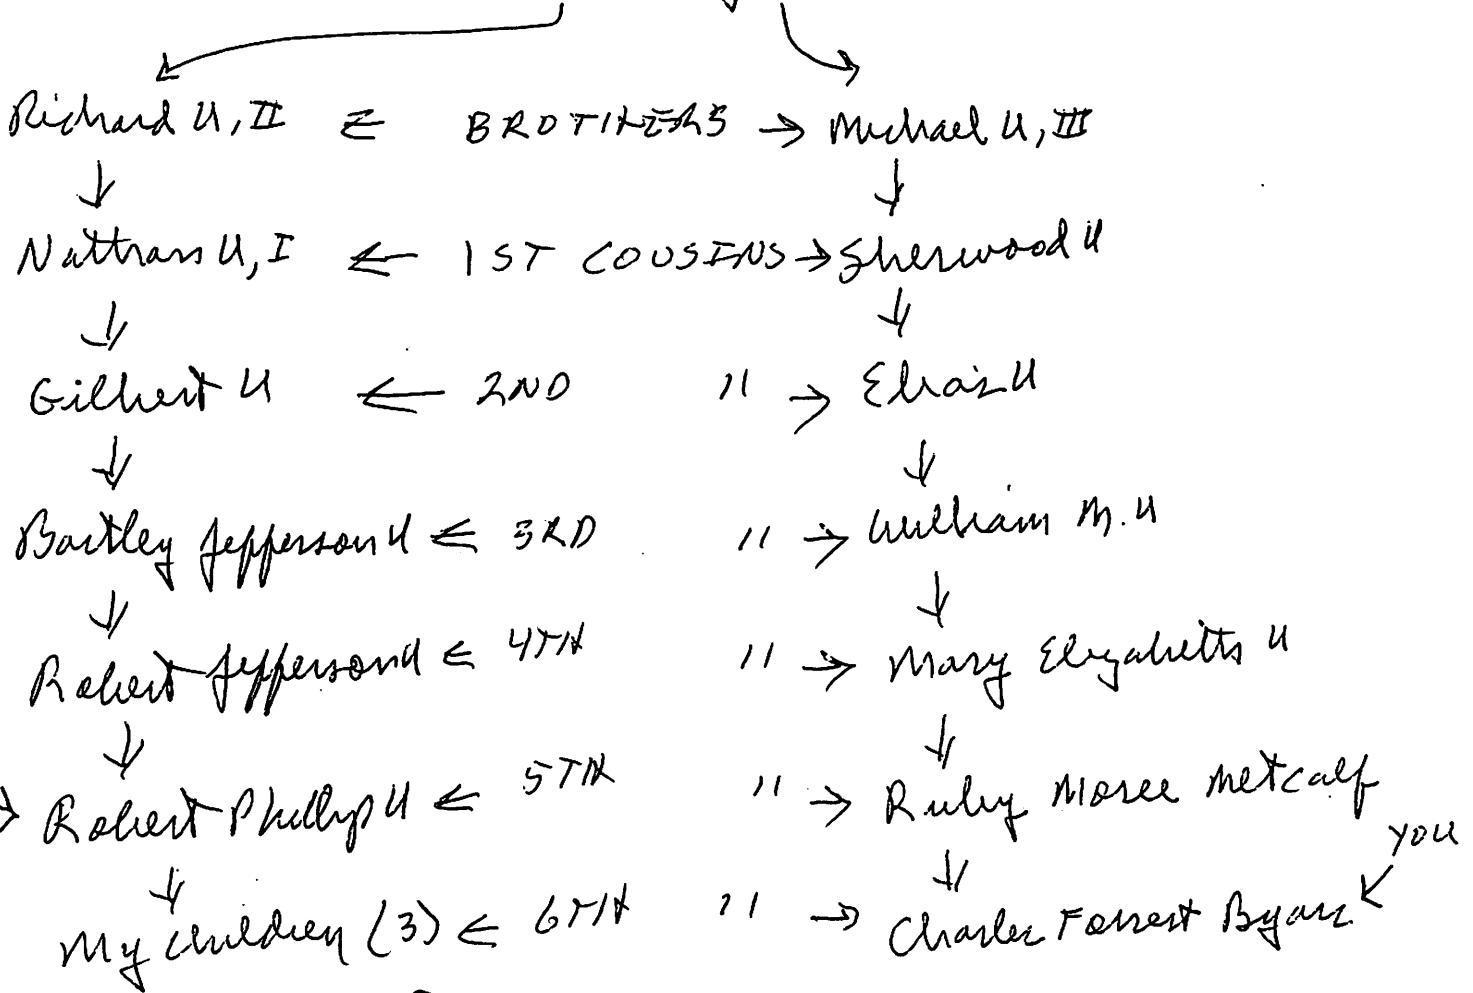 Richard U, II ← BROTHERS → Michael U, III
Nattrass U, I ← 1ST COUSINS → Sherwood U
Gilbert U ← 2ND " → Elias U
Bartley Jefferson U ← 3RD " → William M. U
Robert Jefferson U ← 4TH " → Mary Elizabeth U
Robert Phillip U ← 5TH " → Ruby Moree Metcalf
YOU
My children (3) ← 6TH " → Charles Forrest Byars